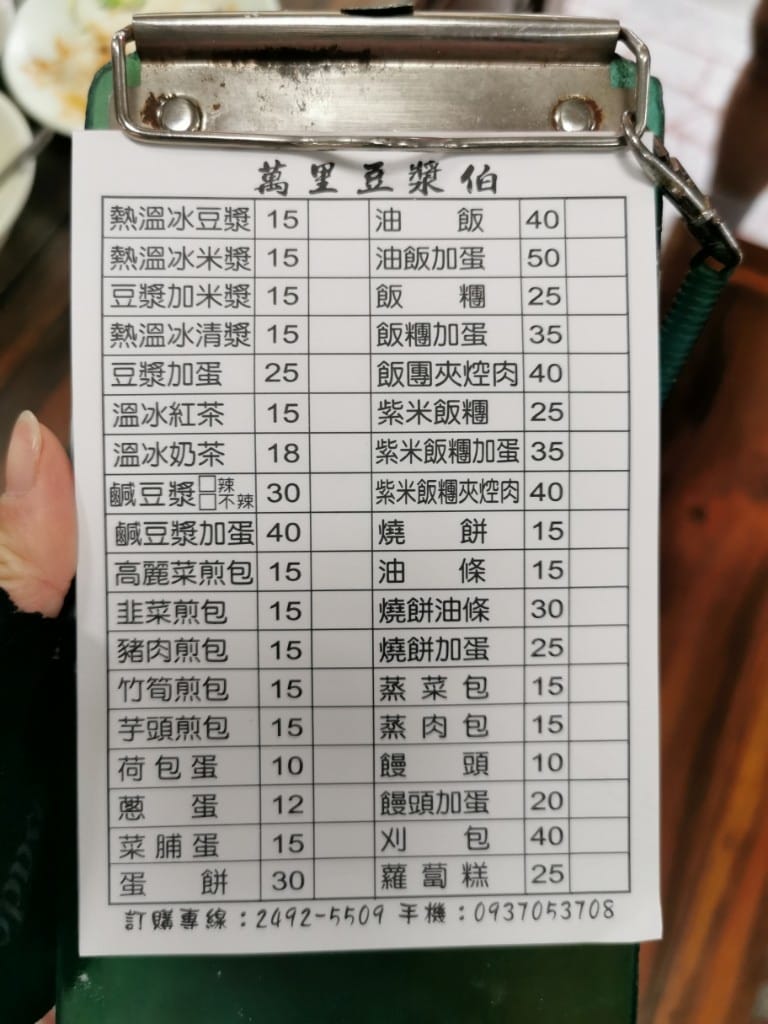 萬里豆漿伯
熱溫冰豆漿 15 油飯 40
熱溫冰米漿 15 油飯加蛋 50
豆漿加米漿 15 飯糰 25
熱溫冰清漿 15 飯糰加蛋 35
豆漿加蛋 25 飯團夾焢肉 40
溫冰紅茶 15 紫米飯糰 25
溫冰奶茶 18 紫米飯糰加蛋 35
鹹豆漿 □辣 □不辣 30 紫米飯糰夾焢肉 40
鹹豆漿加蛋 40 燒餅 15
高麗菜煎包 15 油條 15
韭菜煎包 15 燒餅油條 30
豬肉煎包 15 燒餅加蛋 25
竹筍煎包 15 蒸菜包 15
芋頭煎包 15 蒸肉包 15
荷包蛋 10 饅頭 10
蔥蛋 12 饅頭加蛋 20
菜脯蛋 15 刈包 40
蛋餅 30 蘿蔔糕 25
訂購專線：2492-5509 手機：0937053708